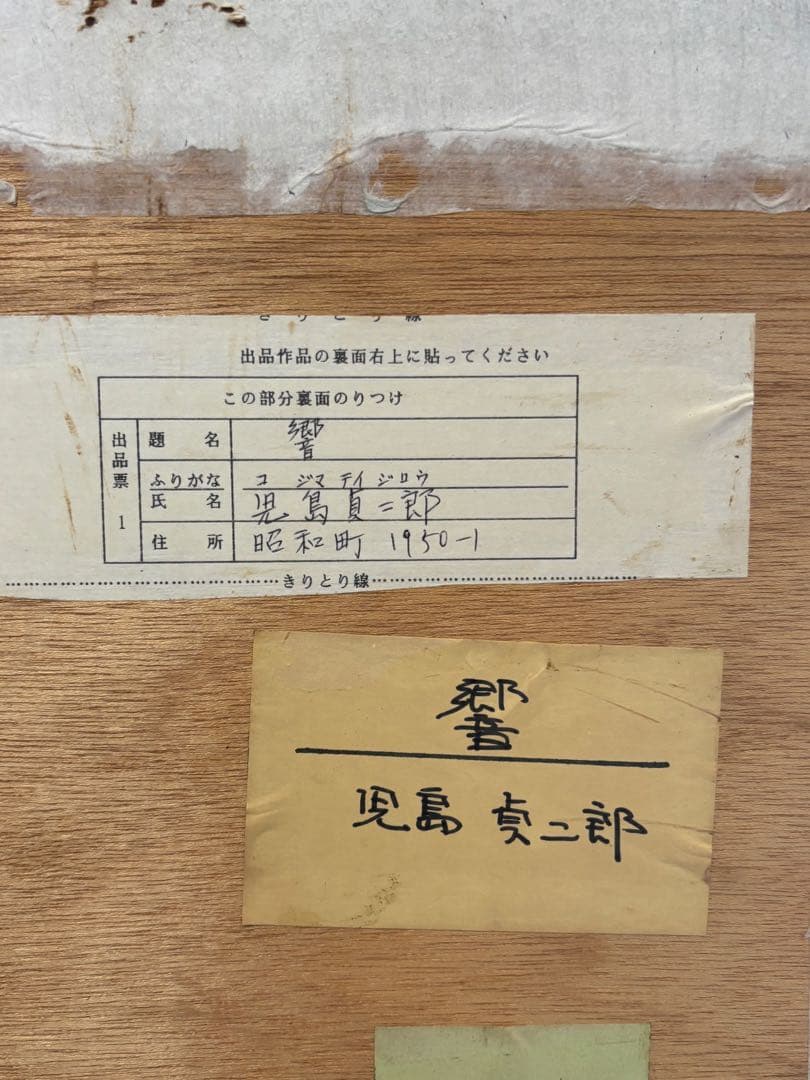 きりとり線
出品作品の裏面右上に貼ってください
この部分裏面のりつけ
出品票 1
題名 響
ふりがな コジマテイジロウ
氏名 児島貞二郎
住所 昭和町 1950-1
きりとり線
響
児島 貞二郎